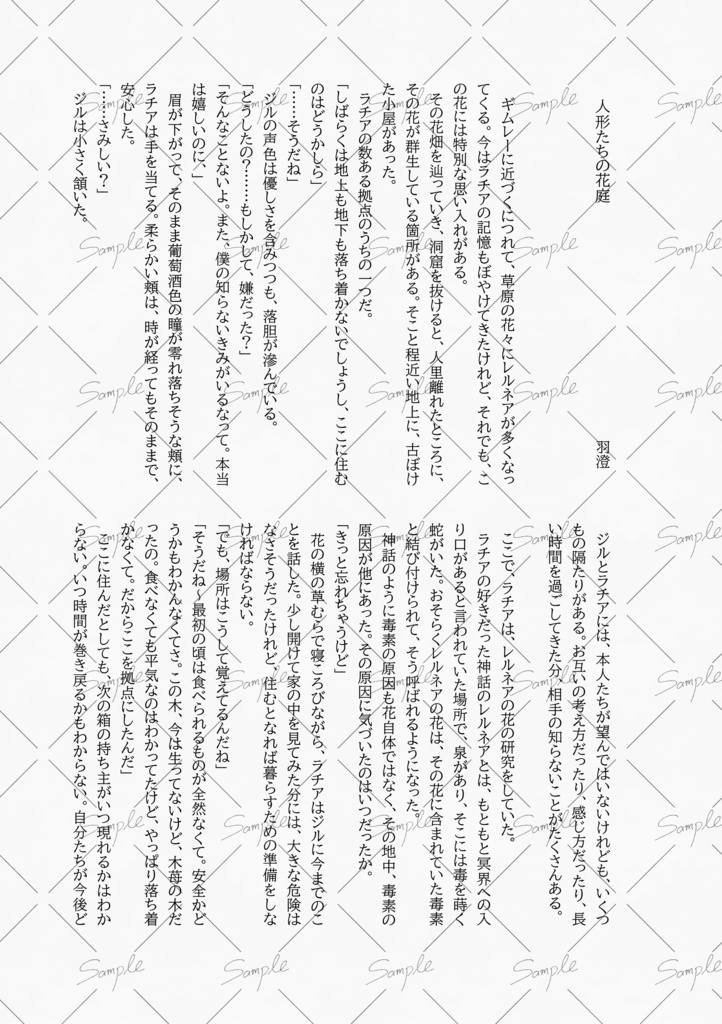 人形たちの花庭
羽澄
ギムレーに近づくにつれて、草原の花々にレルネアが多くなっ
てくる。今はラチアの記憶もぼやけてきたけれど、それでも、こ
の花には特別な思い入れがある。
その花畑を辿っていき、洞窟を抜けると、人里離れたところに、
その花が群生している箇所がある。そこと程近い地上に、古ぼけ
た小屋があった。
ラチアの数ある拠点のうちの一つだ。
「しばらくは地上も地下も落ち着かないでしょうし、ここに住む
のはどうかしら」
「……そうだね」
ジルの声色は優しさを含みつつも、落胆が滲んでいる。
「どうしたの？……もしかして、嫌だった？」
「そんなことないよ。また、僕の知らないきみがいるなって。本当
は嬉しいのに、」
眉が下がって、そのまま葡萄酒色の瞳が零れ落ちそうな頬に、
ラチアは手を当てる。柔らかい頬は、時が経ってもそのままで、
安心した。
「……さみしい？」
ジルは小さく頷いた。
ジルとラチアには、本人たちが望んではいないけれども、いくつ
もの隔たりがある。お互いの考え方だったり、感じ方だったり、長
い時間を過ごしてきた分、相手の知らないことがたくさんある。
ここで、ラチアは、レルネアの花の研究をしていた。
ラチアの好きだった神話のレルネアとは、もともと冥界への入
り口があると言われていた場所で、泉があり、そこには毒を蒔く
蛇がいた。おそらくレルネアの花は、その花に含まれていた毒素
と結び付けられて、そう呼ばれるようになった。
神話のように毒素の原因も花自体ではなく、その地中、毒素の
原因が他にあった。その原因に気づいたのはいつだったか。
「きっと忘れちゃうけど」
花の横の草むらで寝ころびながら、ラチアはジルに今までのこ
とを話した。少し開けて家の中を見てみた分には、大きな危険は
なさそうだったけれど、住むとなれば暮らすための準備をしな
ければならない。
「でも、場所はこうして覚えてるんだね」
「そうだね～最初の頃は食べられるものが全然なくて。安全かど
うかもわかんなくてさ。この木、今は生ってないけど、木苺の木だ
ったの。食べなくても平気なのはわかってたけど、やっぱり落ち着
かなくて。だからここを拠点にしたんだ」
ここに住んだとしても、次の箱の持ち主がいつ現れるかはわか
らない。いつ時間が巻き戻るかもわからない。自分たちが今後ど